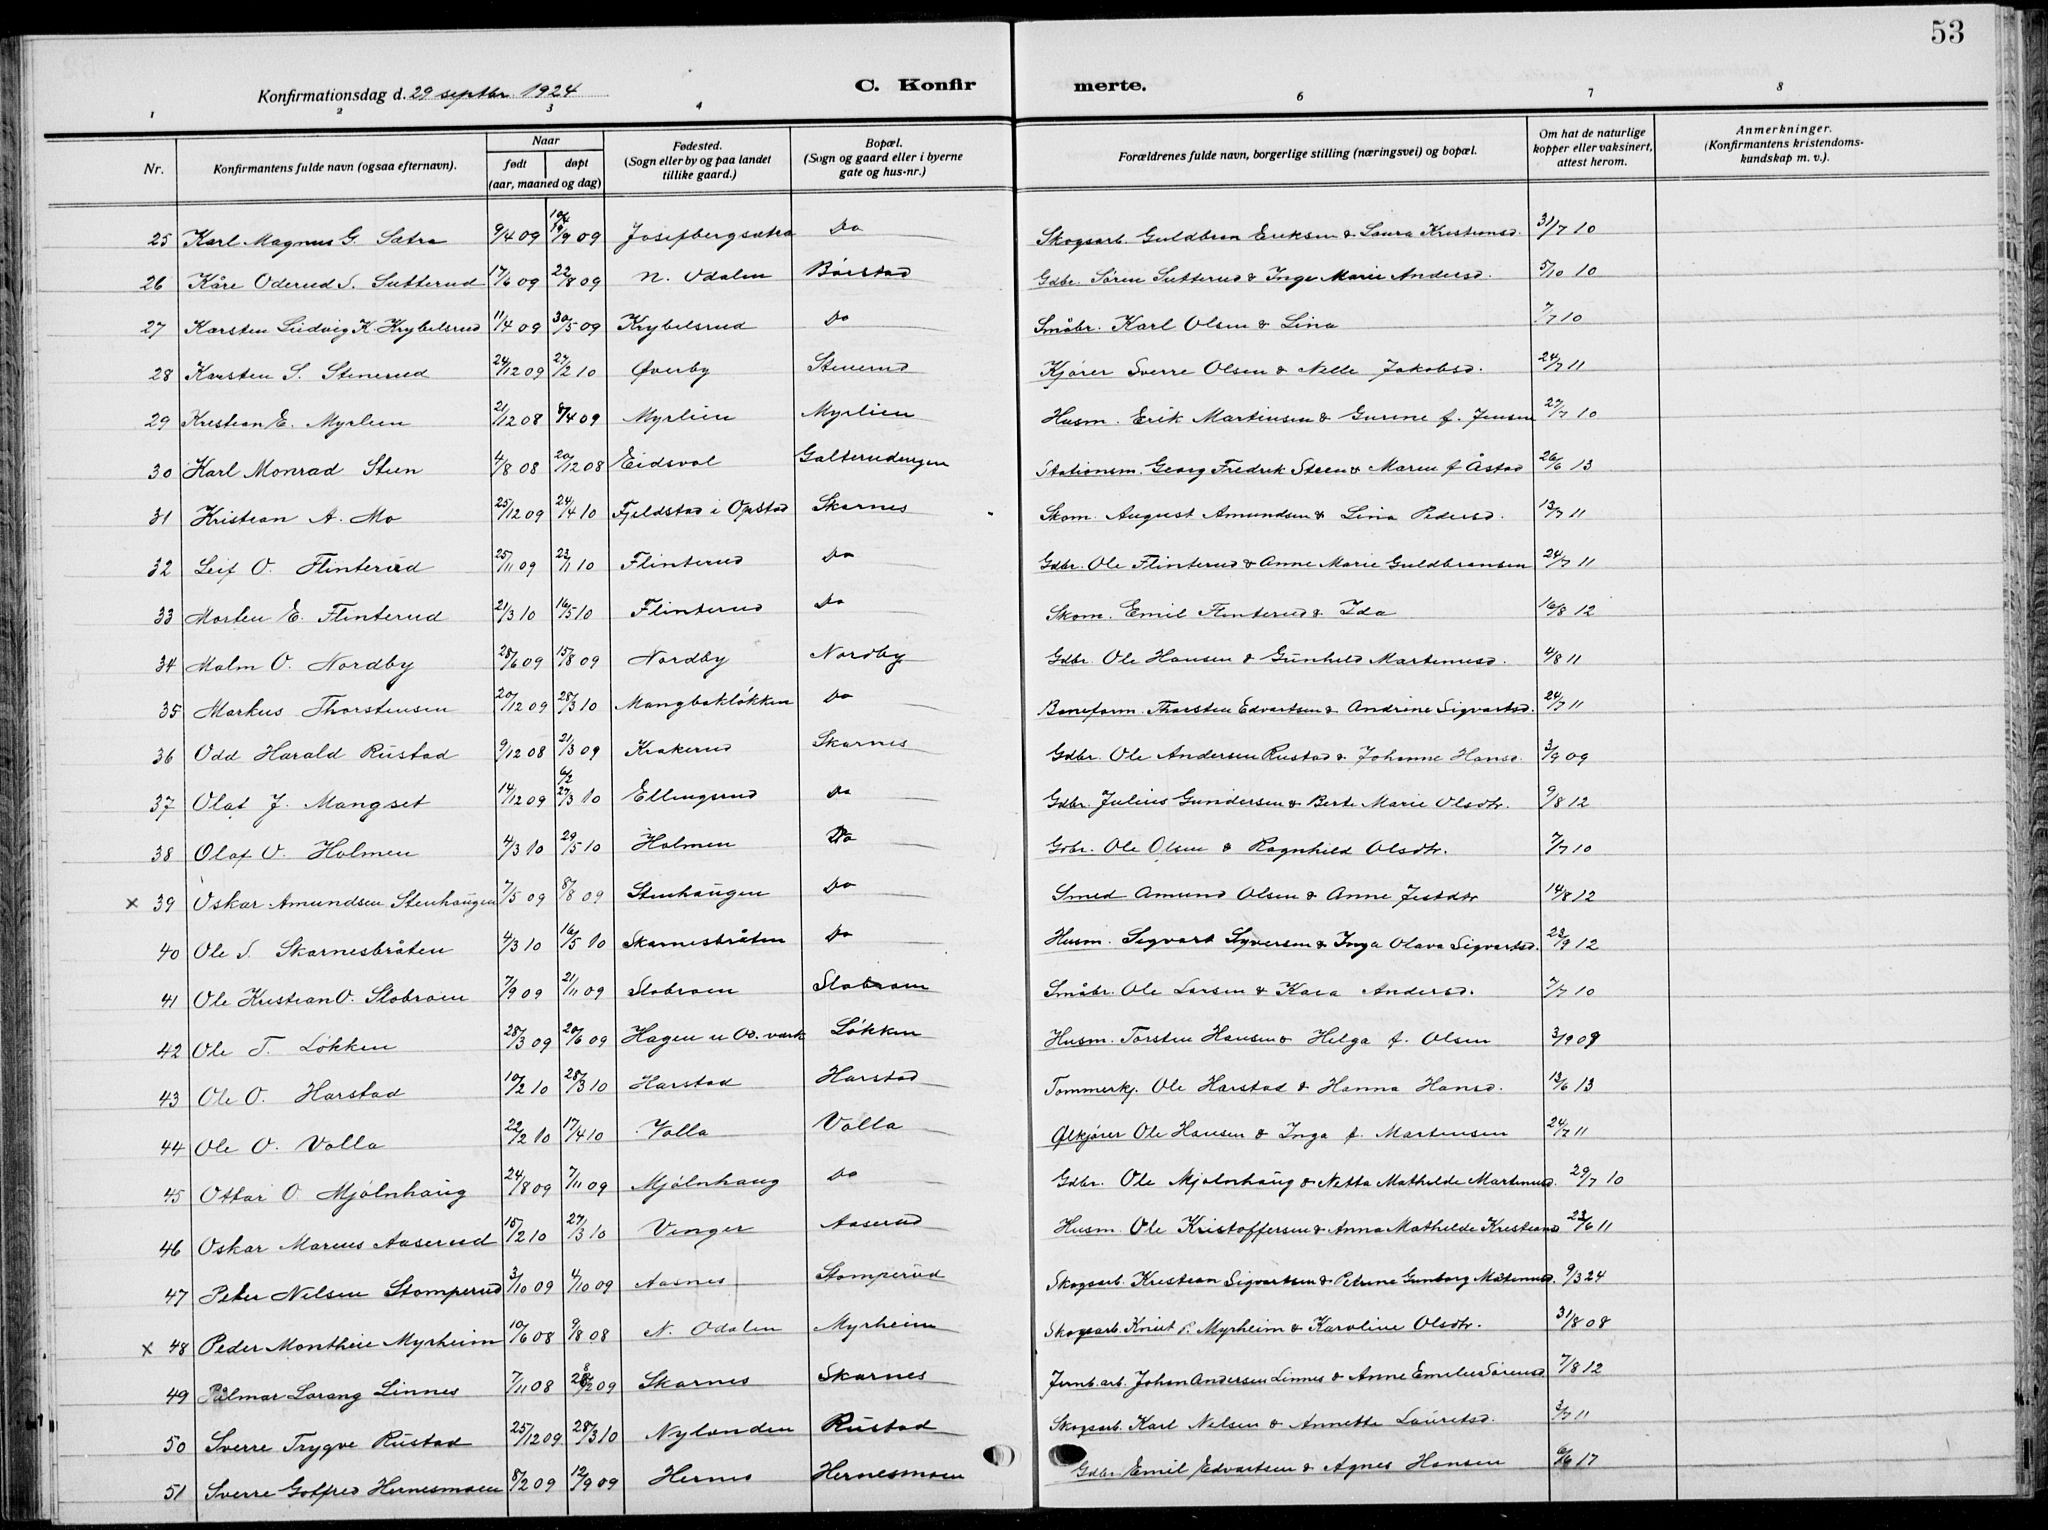 53
Konfirmationsdag d. 29 septbr. 1924 C. Konfirmerte.
1 2 3 4 6 7 8
Nr. Konfirmantens fulde navn (ogsaa efternavn). Naar født døpt (aar, maaned og dag) Fødested. (Sogn eller by og paa landet tillike gaard.) Bopæl. (Sogn og gaard eller i byerne gate og hus-nr.) Forældrenes fulde navn, borgerlige stilling (næringsvei) og bopæl. Om hat de naturlige kopper eller vaksinert, attest herom. Anmerkninger. (Konfirmantens kristendomskundskap m. v.).
25 Karl Magnus G. Sætra 9/4 09 19/9 09 Josefbergsætra Do Skogsarb. Guldbran Eriksen & Laura Kristiansd. 31/7 10
26 Kåre Oderud S. Sutterud 17/6 09 22/8 09 N. Odalen Børstad Gdbr. Søren Sutterud & Inga Marie Andersd. 5/10 10
27 Karsten Ludvig K. Krybelsrud 11/4 09 30/5 09 Krybelsrud Do Småbr. Karl Olsen & Lina 7/7 10
28 Karsten S. Stenerud 24/12 09 27/2 10 Øverby Stenerud Kjører Sverre Olsen & Nelle Jakobsd. 24/7 11
29 Kristian E. Myrlien 21/12 08 8/4 09 Myrlien Myrlien Husm. Erik Martinsen & Gurine f. Jensen 27/7 10
30 Karl Monrad Sten 4/8 08 20/12 08 Eidsvol Galterudengen Stationsm. Georg Fredrik Steen & Maren f Åstad 26/6 13
31 Kristian A. Mo 25/12 09 24/4 10 Fjeldstad i Opstad Skarnes Skom. August Amundsen & Lina Pedersd. 13/7 11
32 Leif O. Flinterud 25/11 09 23/1 10 Flinterud Do Gdbr. Ole Flinterud & Anne Marie Guldbransen 24/7 11
33 Morten E. Flinterud 21/3 10 16/5 10 Flinterud Do Skom. Emil Flinterud & Ida 16/8 12
34 Malm O. Nordby 28/6 09 15/8 09 Nordby Nordby Gdbr. Ole Hansen & Gunhild Martinusd. 4/8 11
35 Markus Thorstensen 20/12 09 28/3 10 Mangbakløkken Do Baneform. Thorsten Edvartsen & Andrine Sigvartsd. 24/7 11
36 Odd Harald Rustad 9/12 08 21/3 09 Krakerud Skarnes Gdbr. Ole Andersen Rustad & Johanne Hansd. 3/9 09
37 Olaf J. Mangset 14/12 09 6/2 27/3 10 Ellingsrud Do Gdbr. Julius Gundersen & Berte Marie Olsdtr. 9/8 12
38 Olaf O. Holmen 4/3 10 29/5 10 Holmen Do Gdbr. Ole Olsen & Ragnhild Olsdtr. 7/7 10
x 39 Oskar Amundsen Stenhaugen 7/5 09 8/8 09 Stenhaugen Do Smed Amund Olsen & Anne Jestdtr 14/8 12
40 Ole S. Skarnesbråten 4/3 10 16/5 10 Skarnesbråten Do Husm. Sigvart Syversen & Inga Olava Sigvartsd. 23/9 12
41 Ole Kristian O. Slobraen 7/9 09 21/11 09 Slobraen Slobraen Småbr. Ole Larsen & Kaia Andersd. 7/7 10
42 Ole T. Løkken 28/3 09 20/6 09 Hagen u Od. værk Løkken Husm. Torsten Hansen & Helga f. Olsen 3/9 09
43 Ole O. Harstad 10/2 10 28/3 10 Harstad Harstad Tømmerkj. Ole Harstad & Hanna Hansd. 13/6 13
44 Ole O. Volla 22/2 10 17/4 10 Volla Volla Ølkjører Ole Hansen & Inga f. Martinsen 24/7 11
45 Ottar O. Mjølnhaug 24/8 09 7/11 09 Mjølnhaug Do Gdbr. Ole Mjølnhaug & Netta Mathilde Martinusd. 29/7 10
46 Oskar Marius Aaserud 15/2 10 27/3 10 Vinger Aaserud Husm. Ole Kristoffersen & Anna Mathilde Kristiansd 23/6 11
47 Peter Nilsen Stomperud 3/10 09 4/10 09 Aasnes Stomperud Skogsarb. Kristian Sigvartsen & Petrine Gunborg Matinusd. 9/3 24
x 48 Peder Montheie Myrheim 10/6 08 9/8 08 N. Odalen Myrheim Skogsarb. Knut P. Myrheim & Karoline Olsdtr. 31/8 08
49 Palmar Lorang Linnes 7/11 08 28/2 09 Skarnes Skarnes Jernb.arb. Johan Andersen Linnes & Anne Emilie Sørensd. 7/8 12
50 Sverre Trygve Rustad 25/12 09 28/3 10 Nylenden Rustad Skogsarb. Karl Nilsen & Annette Lauritsd. 3/7 11
51 Sverre Gotfred Hernesmoen 8/2 09 12/9 09 Hernes Hernesmoen Gdbr. Emil Edvartsen & Agnes Hansen 6/6 17